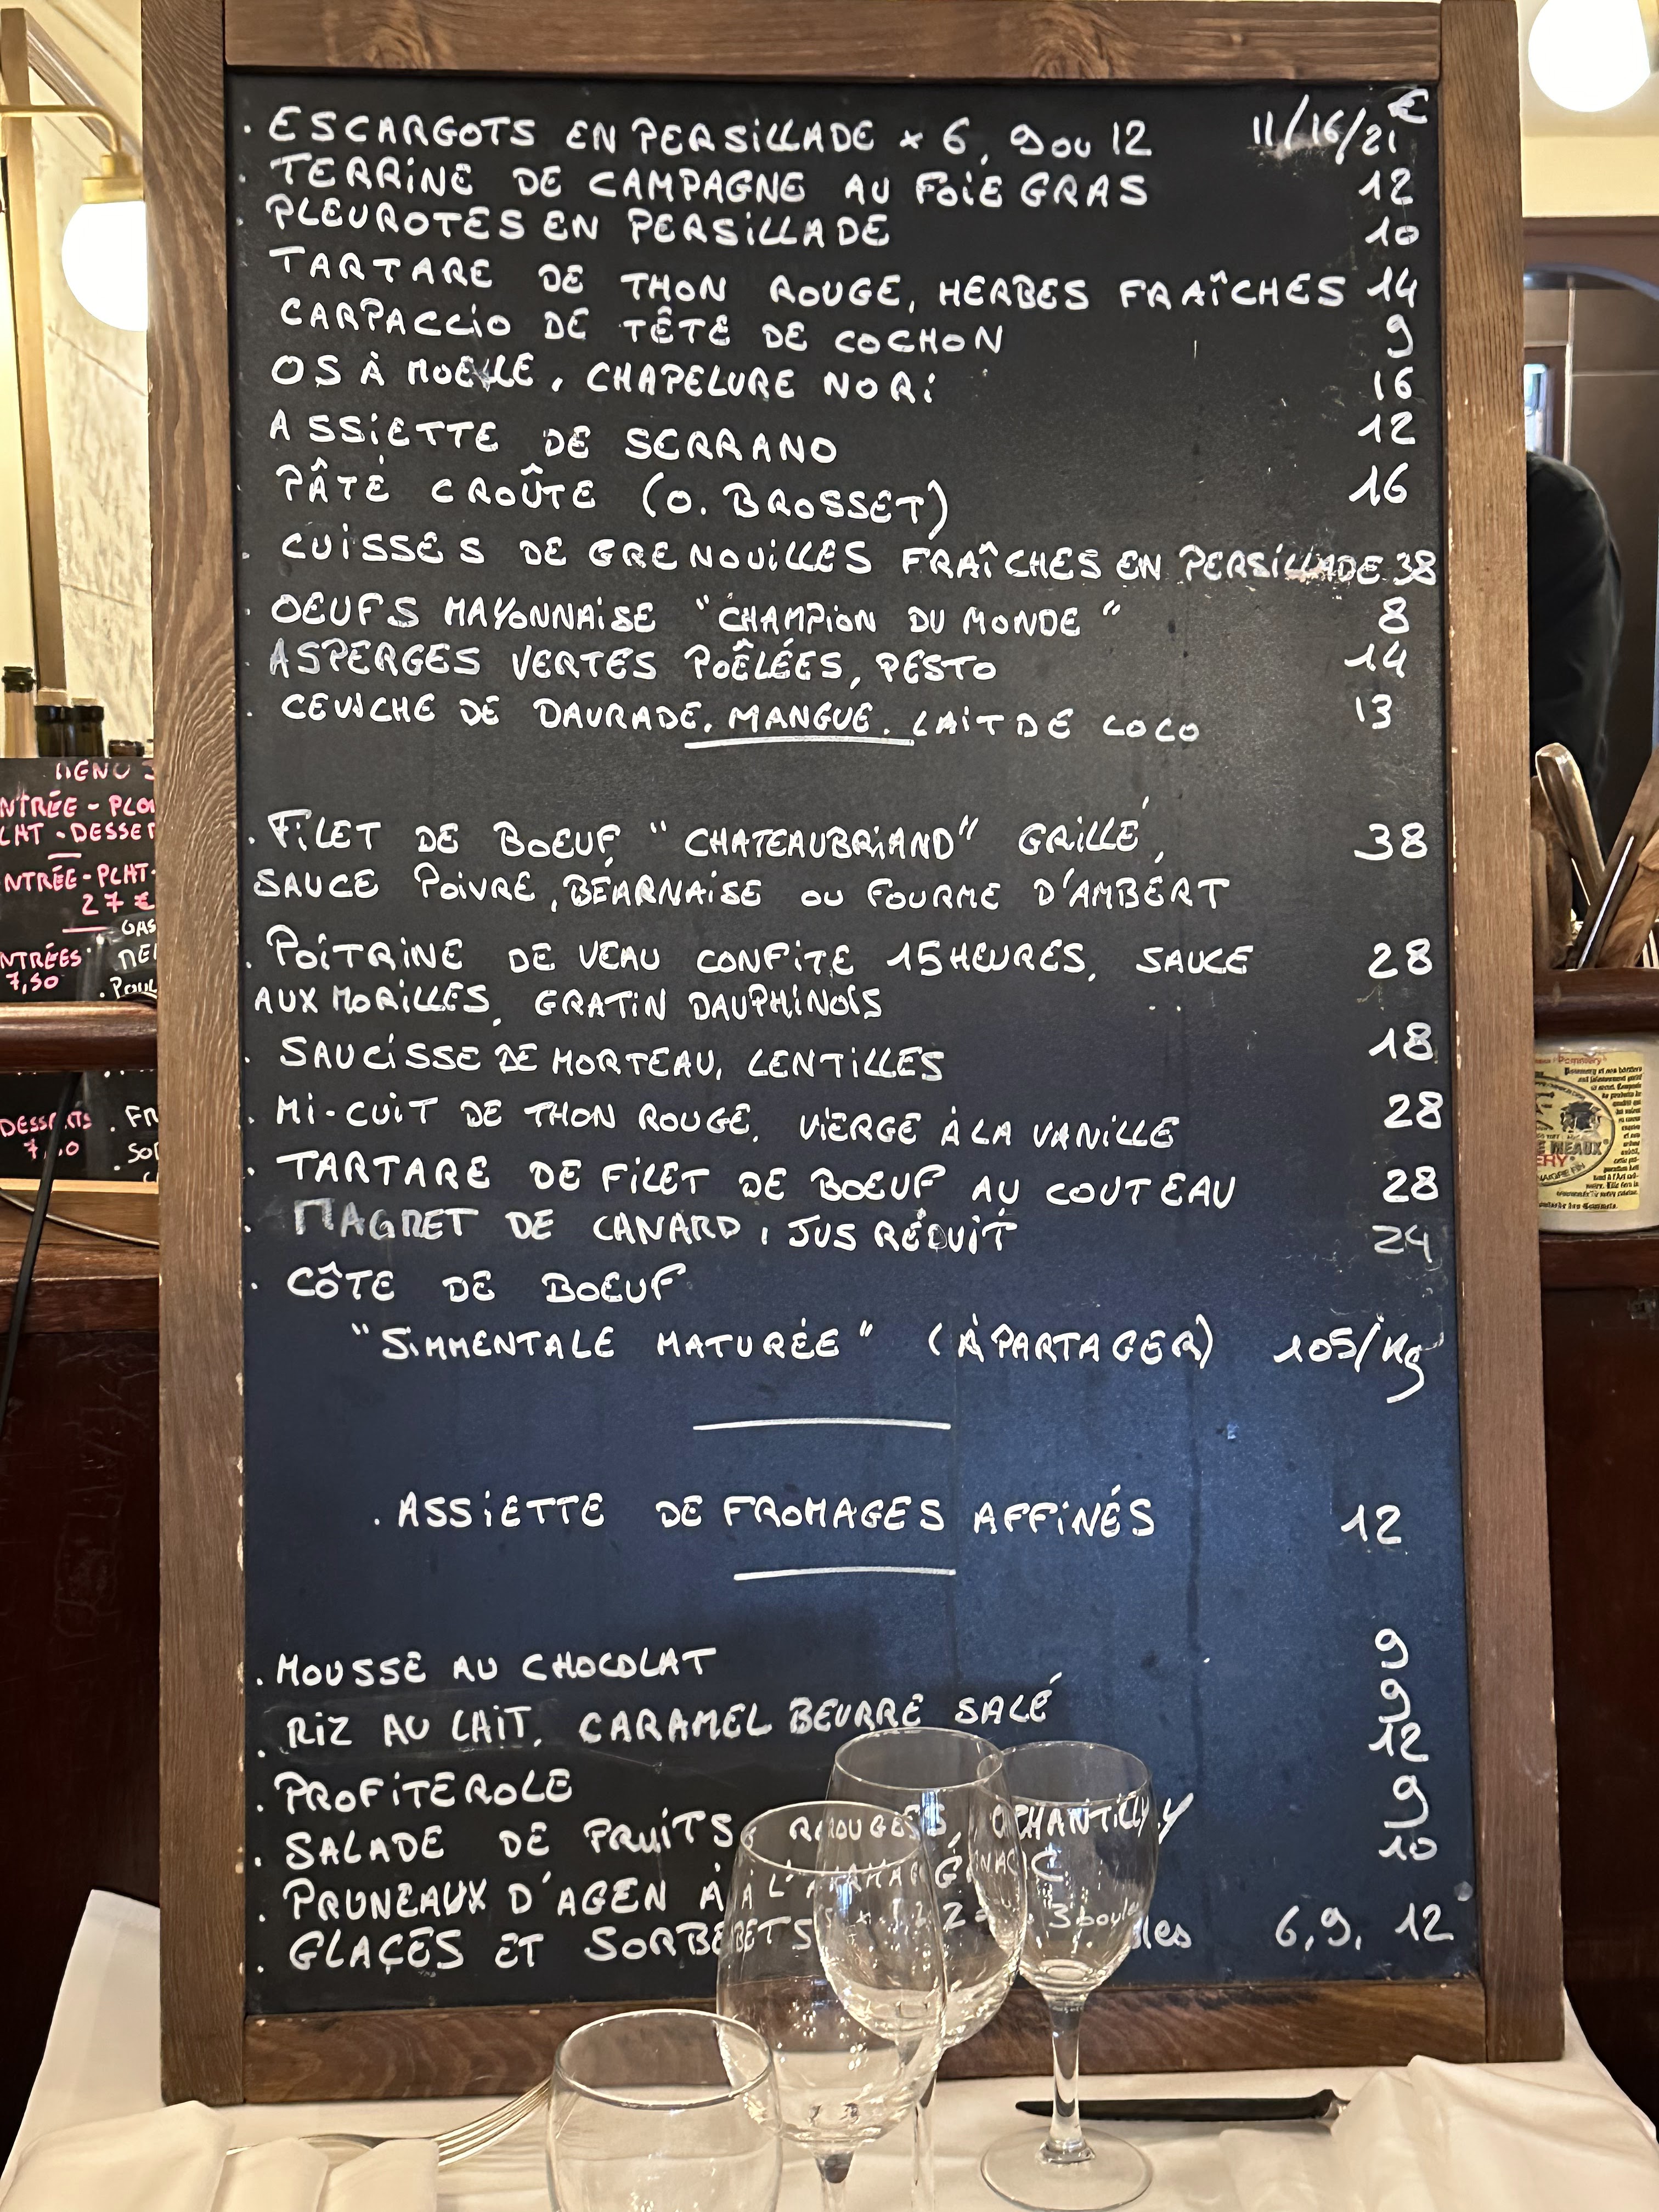 €
. ESCARGOTS EN PERSILLADE x 6, 9 ou 12 11/16/21
. TERRINE DE CAMPAGNE AU FOIE GRAS 12
. PLEUROTES EN PERSILLADE 10
TARTARE DE THON ROUGE, HERBES FRAÎCHES 14
CARPACCIO DE TÊTE DE COCHON 9
OS À MOELLE, CHAPELURE NORI 16
ASSIETTE DE SERRANO 12
PÂTÉ CROÛTE (O. BROSSET) 16
. CUISSES DE GRENOUILLES FRAÎCHES EN PERSILLADE 38
. OEUFS MAYONNAISE "CHAMPION DU MONDE" 8
. ASPERGES VERTES POÊLÉES, PESTO 14
. CEVICHE DE DAURADE, MANGUE, LAIT DE COCO 13
. FILET DE BOEUF "CHATEAUBRIAND" GRILLÉ, 38
SAUCE POIVRE, BÉARNAISE OU FOURME D'AMBERT
. POITRINE DE VEAU CONFITE 15 HEURES, SAUCE 28
AUX MORILLES, GRATIN DAUPHINOIS
. SAUCISSE DE MORTEAU, LENTILLES 18
. MI-CUIT DE THON ROUGE, VIERGE À LA VANILLE 28
. TARTARE DE FILET DE BOEUF AU COUTEAU 28
. MAGRET DE CANARD, JUS RÉDUIT 24
. CÔTE DE BOEUF
"SIMMENTALE MATURÉE" (À PARTAGER) 105/Kg
. ASSIETTE DE FROMAGES AFFINÉS 12
. MOUSSE AU CHOCOLAT 9
. RIZ AU LAIT, CARAMEL BEURRE SALÉ 9
. PROFITEROLE 12
. SALADE DE FRUITS ROUGES, CHANTILLY 9
. PRUNEAUX D'AGEN À L'ARMAGNAC 10
. GLACES ET SORBETS 6, 9, 12
MENU
ENTRÉE - PLAT
PLAT - DESSERT
ENTRÉE - PLAT -
27 €
ENTRÉES
7,50
DESSERTS
7,50
Pommery
MEAUX